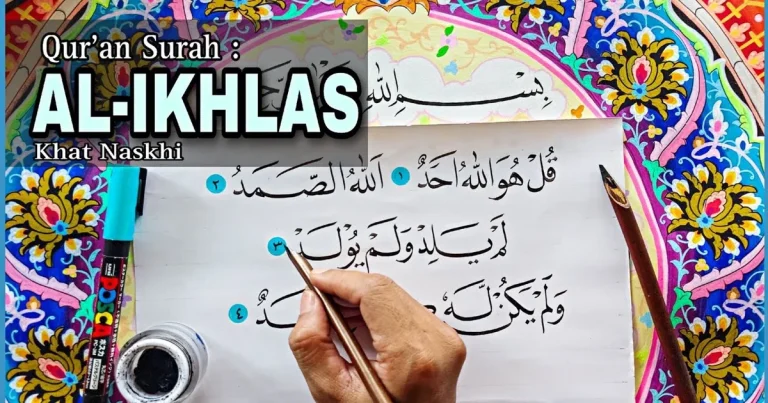 Qur’an Surah :
AL-IKHLAS
Khat Naskhi
بِسْمِ اللهِ
قُلْ هُوَ اللهُ اَحَدٌ ١ اَللهُ الصَّمَدُ ٢
لَمْ يَلِدْ وَلَمْ يُوْلَدْ ٣
وَلَمْ يَكُنْ لَّهٗ ٤
POSCA